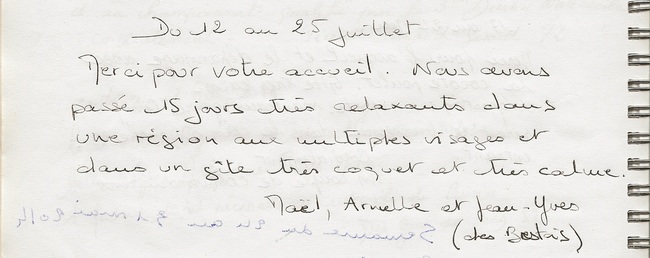 Du 12 au 25 juillet
Merci pour votre accueil. Nous avons
passé 15 jours très relaxants dans
une région aux multiples visages et
dans un gîte très coquet et très calme.
Maël, Armelle et Jean-Yves
(des Bretois)